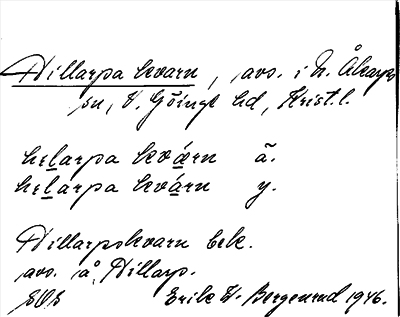 Hillarpa kvarn, avs. i N. Åkarps
sn, V. Göinge hd, Krist. l.
helarpa kvǽrn ä.
helarpa kvárn y.
Hillarpskvarn bek.
avs. å Hillarp.
Erik W. Bergenrud 1946.